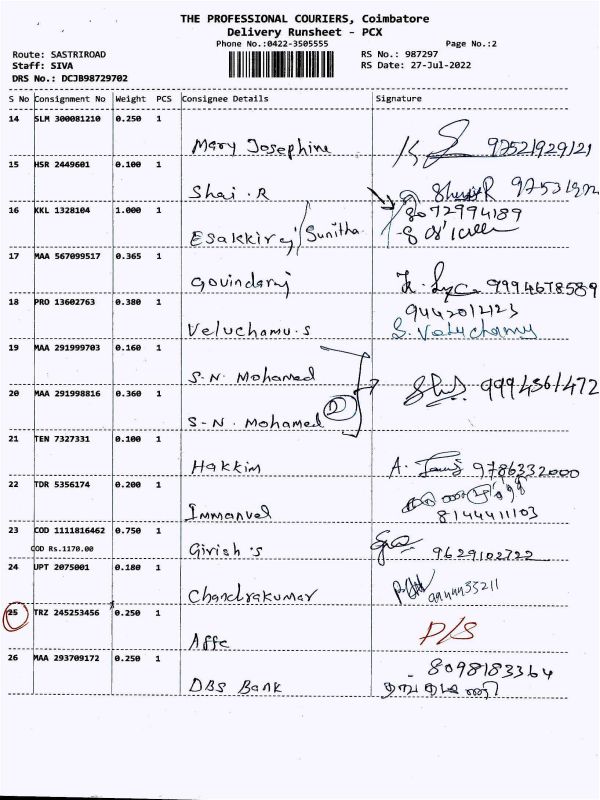 THE PROFESSIONAL COURIERS, Coimbatore
Delivery Runsheet - PCX
Phone No.:0422-3505555
Page No.:2
Route: SASTRIROAD
RS No.: 987297
Staff: SIVA
RS Date: 27-Jul-2022
DRS No.: DCJB98729702
S No Consignment No Weight PCS Consignee Details Signature
14 SLM 300081210 0.250 1
Mary Josephine 9752192912
15 HSR 2449601 0.100 1
Shai . R
16 KKL 1328104 1.000 1
8072994189
Esakkiraj / Sunitha
17 MAA 567099517 0.365 1
Govindaraj 9994678589
18 PRO 13602763 0.380 1
9442012123
Veluchamu.s S. Veluchamy
19 MAA 291999703 0.160 1
S.N. Mohamed
20 MAA 291998816 0.360 1
9994361472
S-N. Mohamed
21 TEN 7327331 0.100 1
Hakkim A. 9786332000
22 TDR 5356174 0.200 1
Immanuel 8144411103
23 COD 1111816462 0.750 1
COD Rs.1170.00
Girish.s 9629102722
24 UPT 2075001 0.180 1
Chandrakumar 9944433211
25 TRZ 245253456 0.250 1
P/S
Affc
26 MAA 293709172 0.250 1
8098183364
DBS Bank